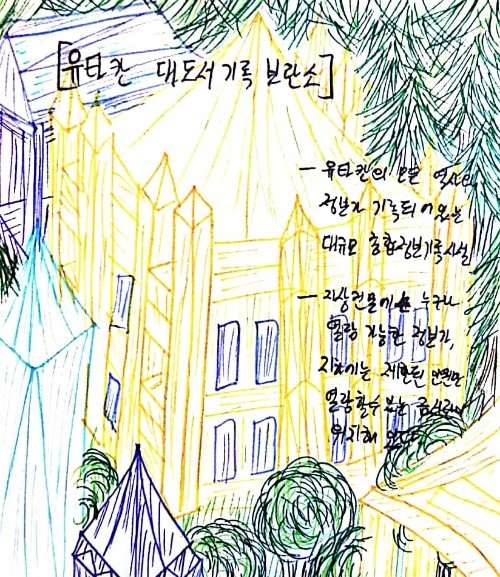 [유타칸 대도서기록 보관소]
- 유타칸의 모든 역사와
정보가 기록되어 있는
대규모 종합정보기록시설
- 지상건물에는 누구나
열람 가능한 정보가,
지하에는 제한된 인원만
열람할 수 있는
위치해 있다